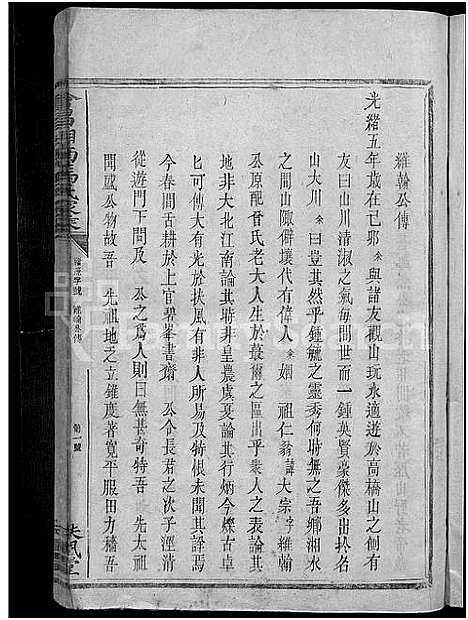 維翰公傳
光緒五年歲在己卯余與諸友觀山玩水適遊於高橋山之側有
友曰山川清淑之氣每間世而一鍾英賢豪傑多出於名
山大川余曰豈其然乎鍾毓之靈秀何時無之吾鄉湘水
之間山陬僻壤代有偉人余姻祖仁翁諱大宗字維翰
公原配曾氏老大人生於蕞爾之區出乎衆人之表論其
地非大北江南論其時非皇農虞夏論其行炳今爍古卓
匕可傳大有光於扶風有非人所易及特恨未聞其詳焉
今春間舌耕於上官碧峯書齋公令長君之次子涇清
從遊門下問及公之爲人則曰無甚奇特吾先太祖
問感公物故吾先祖地之立錐度著寬平服田力穡吾
會昌湘南馬氏家乘
維翰公傳
第一號
扶風堂